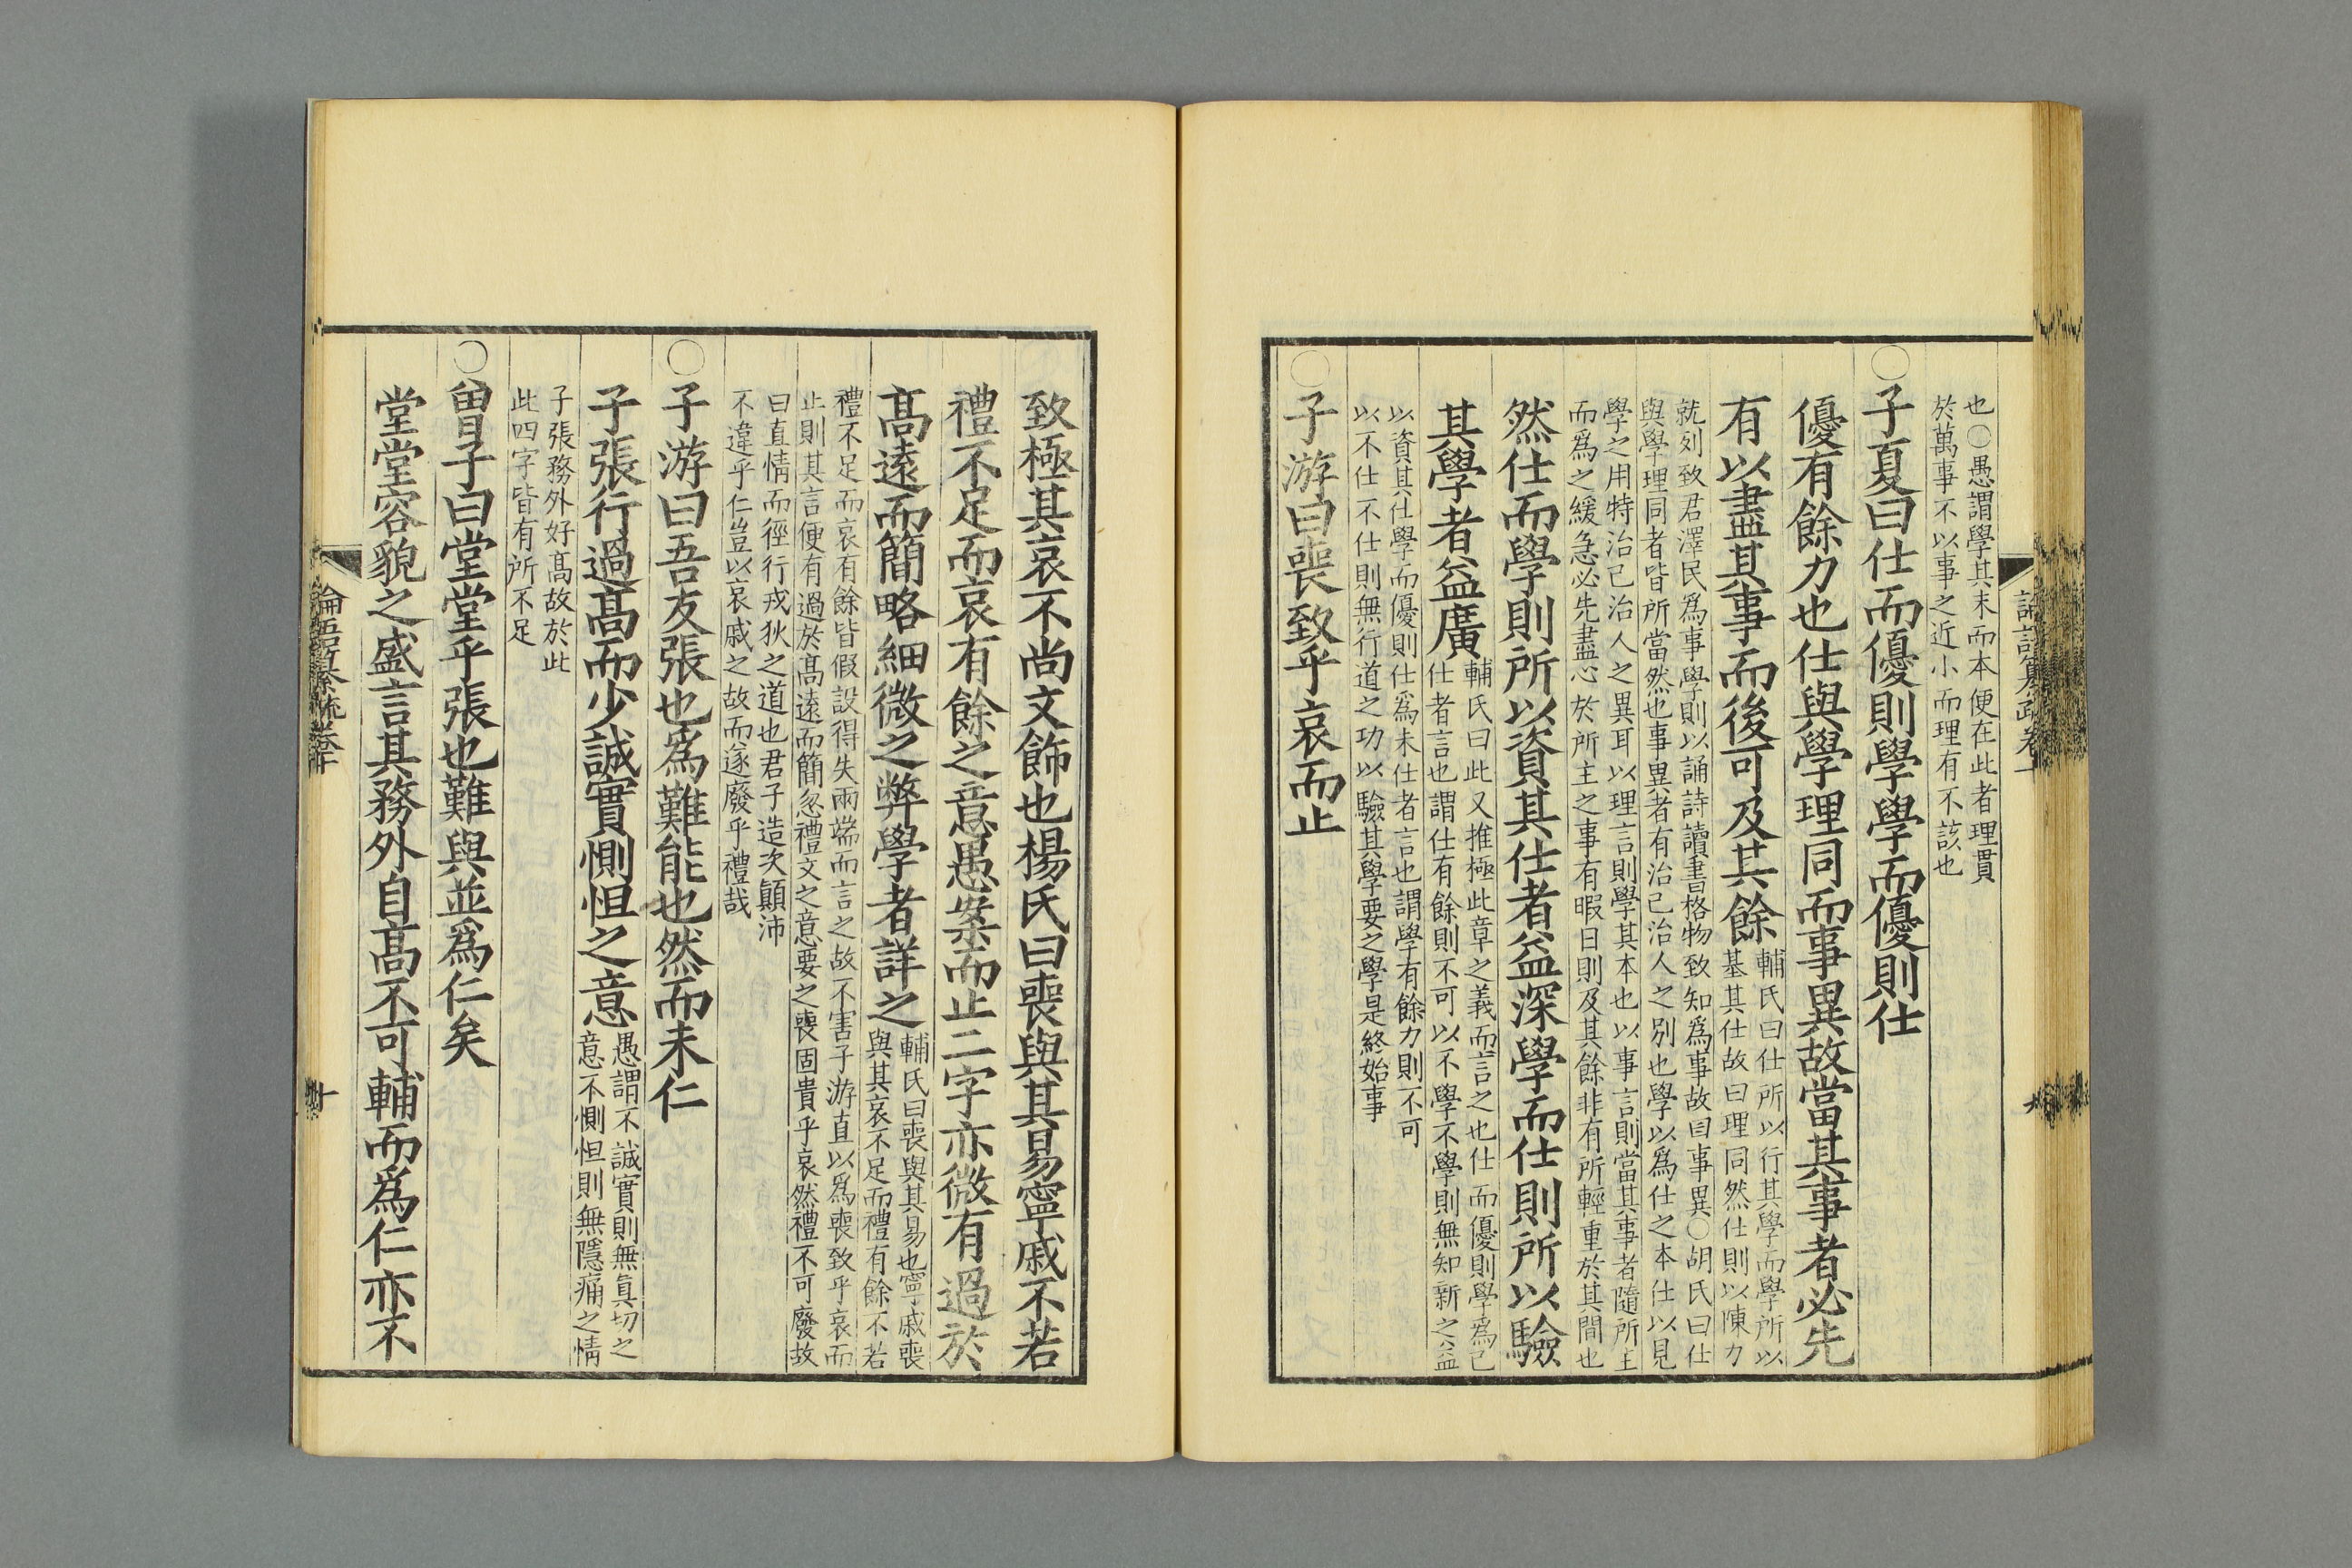 也○愚謂學其末而本便在此者理貫
於萬事不以事之近小而理有不該也
○子夏曰仕而優則學學而優則仕
優有餘力也仕與學理同而事異故當其事者必先
有以盡其事而後可及其餘
輔氏曰仕所以行其學而學所以
基其仕故曰理同然仕則以陳力
就列致君澤民爲事學則以誦詩讀書格物致知爲事故曰事異○胡氏曰仕
與學理同者皆所當然也事異者有治己治人之別也學以爲仕之本仕以見
學之用特治己治人之異耳以理言則學其本也以事言則當其事者隨所主
而爲之緩急必先盡心於所主之事有暇日則及其餘非有所輕重於其間也
然仕而學則所以資其仕者益深學而仕則所以驗
其學者益廣
輔氏曰此又推極此章之義而言之也仕而優則學爲已
仕者言也謂仕有餘則不可以不學不學則無知新之益
以資其仕學而優則仕爲未仕者言也謂學有餘力則不可
以不仕不仕則無行道之功以驗其學要之學是終始事
○子游曰喪致乎哀而止
九
致極其哀不尚文飾也楊氏曰喪與其易寧戚不若
禮不足而哀有餘之意愚案而止二字亦微有過於
高遠而簡略細微之弊學者詳之
輔氏曰喪與其易也寧戚喪
與其哀不足而禮有餘不若
禮不足而哀有餘皆假設得失兩端而言之故不害子游直以爲喪致乎哀而
止則其言便有過於高遠而簡忽禮文之意要之喪固貴乎哀然禮不可廢故
曰直情而徑行戎狄之道也君子造次顚沛
不違乎仁豈以哀戚之故而遂廢乎禮哉
○子游曰吾友張也爲難能也然而未仁
子張行過高而少誠實惻怛之意
愚謂不誠實則無眞切之
意不惻怛則無隱痛之情
子張務外好高故於此
此四字皆有所不足
○曾子曰堂堂乎張也難與並爲仁矣
堂堂容貌之盛言其務外自高不可輔而爲仁亦不
論語纂疏卷十
十